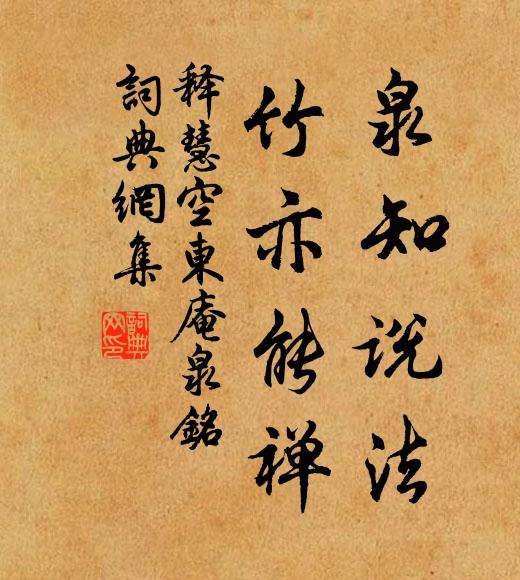 泉知说法
竹亦能禅
释慧空東庵泉銘
詞典網集
詞典網印